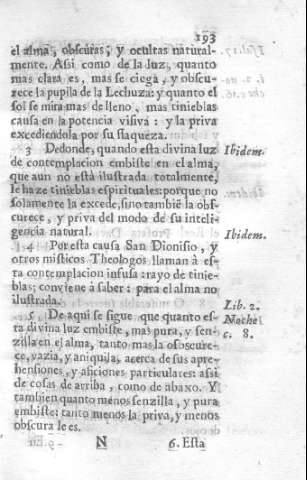 193
el alma, obscuras, y ocultas natural-
mente. Assi como de la luz, quanto
mas clara es, mas se ciega, y obscu-
rece la pupila de la Lechuza: y quanto el
sol se mira mas de lleno, mas tinieblas
causa en la potencia visiva: y la priva
excediendola por su flaqueza.
3 Dedonde, quando esta divina luz
de contemplacion embiste en el alma,
que aun no està ilustrada totalmente,
le haze tinieblas espirituales: porque no
solamente la excede, sino tambiẽ la obs-
curece, y priva del modo de su inteli-
gencia natural.
4 Por esta causa San Dionisio, y
otros misticos Theologos llaman à es-
ta contemplacion infusa: rayo de tinie-
blas; conviene à saber: para el alma no
ilustrada.
5 De aqui se sigue que quanto es-
ta divina luz embiste, mas pura, y sen-
zilla en el alma, tanto mas la obscure-
ce, vazia, y aniquila, acerca de sus apre-
hensiones, y aficiones particulares: assi
de cosas de arriba, como de abaxo. Y
tambien quanto menos senzilla, y pura
embiste: tanto menos la priva, y menos
obscura le es.
N
6. Esta
Ibidem.
Ibidem.
Lib. 2.
Noche
c. 8.